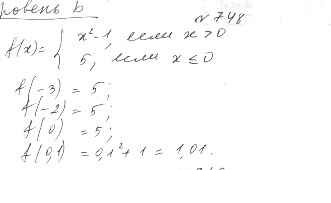 ровень b
№ 748
f(x)= { x²-1, если x>0
5, если x≤0
f(-3) = 5;
f(-2) = 5;
f(0) = 5;
f(0,1) = 0,1²+1 = 1,01.